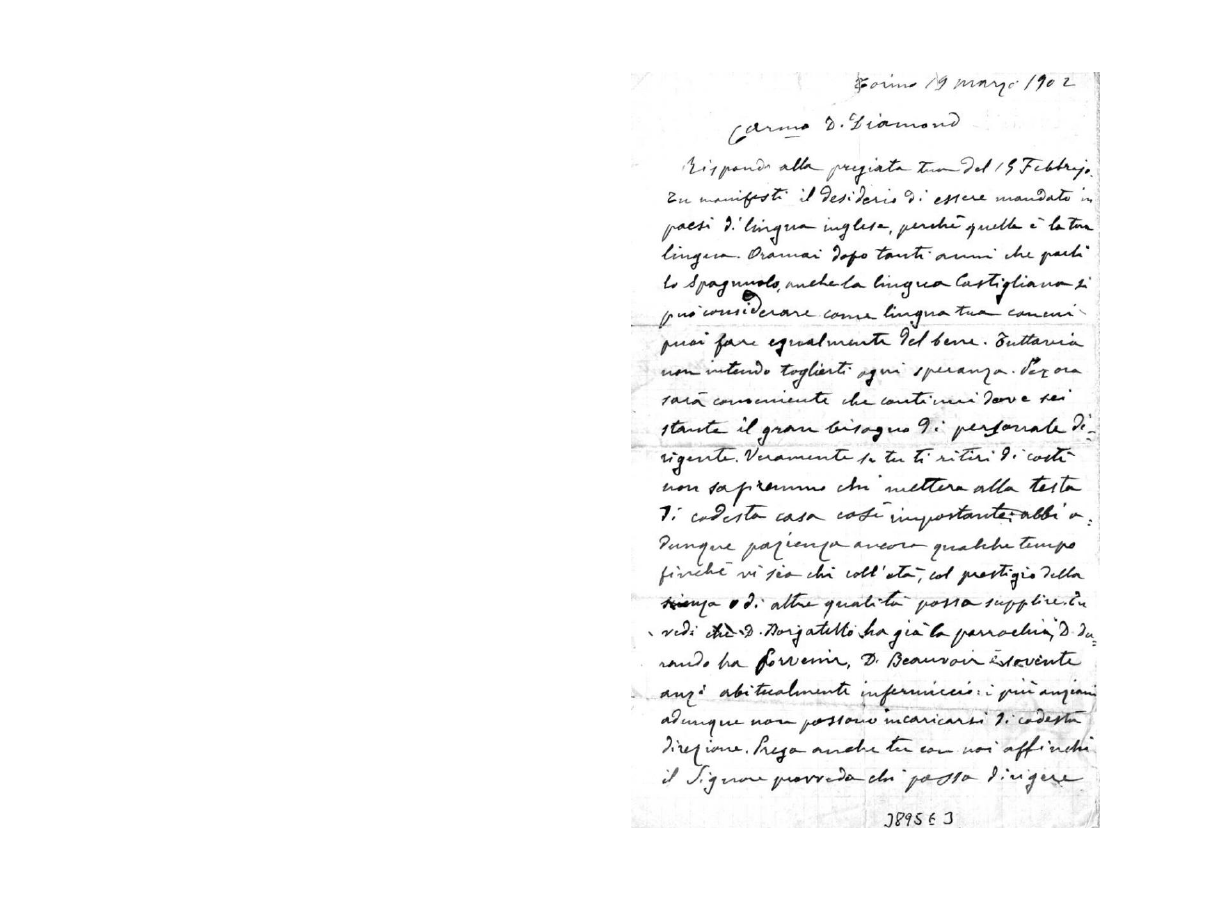 Torino 19 marzo 1902
Carmo D. Diamond
Rispondo alla pregiata tua del 15 Febbrajo.
Tu manifesti il desiderio di essere mandato in
paesi di lingua inglese, perchè quella è la tua
lingua. Oramai dopo tanti anni che parli
lo Spagnuolo, anche la lingua Castigliana si
può considerare come lingua tua con cui
puoi fare egualmente del bene. Tuttavia
non intendo toglierti ogni speranza. Per ora
sarà conveniente che continui dove sei
stante il gran bisogno di personale di=
rigente. Veramente se tu ti ritiri di costì
non sapremmo chi mettere alla testa
di codesta casa così importante: abbi a=
dunque pazienza ancora qualche tempo
finchè vi sia chi coll'età, col prestigio della
scienza o di altre qualità possa supplire. Tu
vedi che D. Borgatello ha già la parrochia, D. Du=
rando ha Porvenir, D. Beauvoir è sovente
anzi abitualmente infermiccio: i più anziani
adunque non possono incaricarsi di codesta
direzione. Prega anche tu con noi affinchè
il Signore provveda chi possa dirigere
3895 E 3